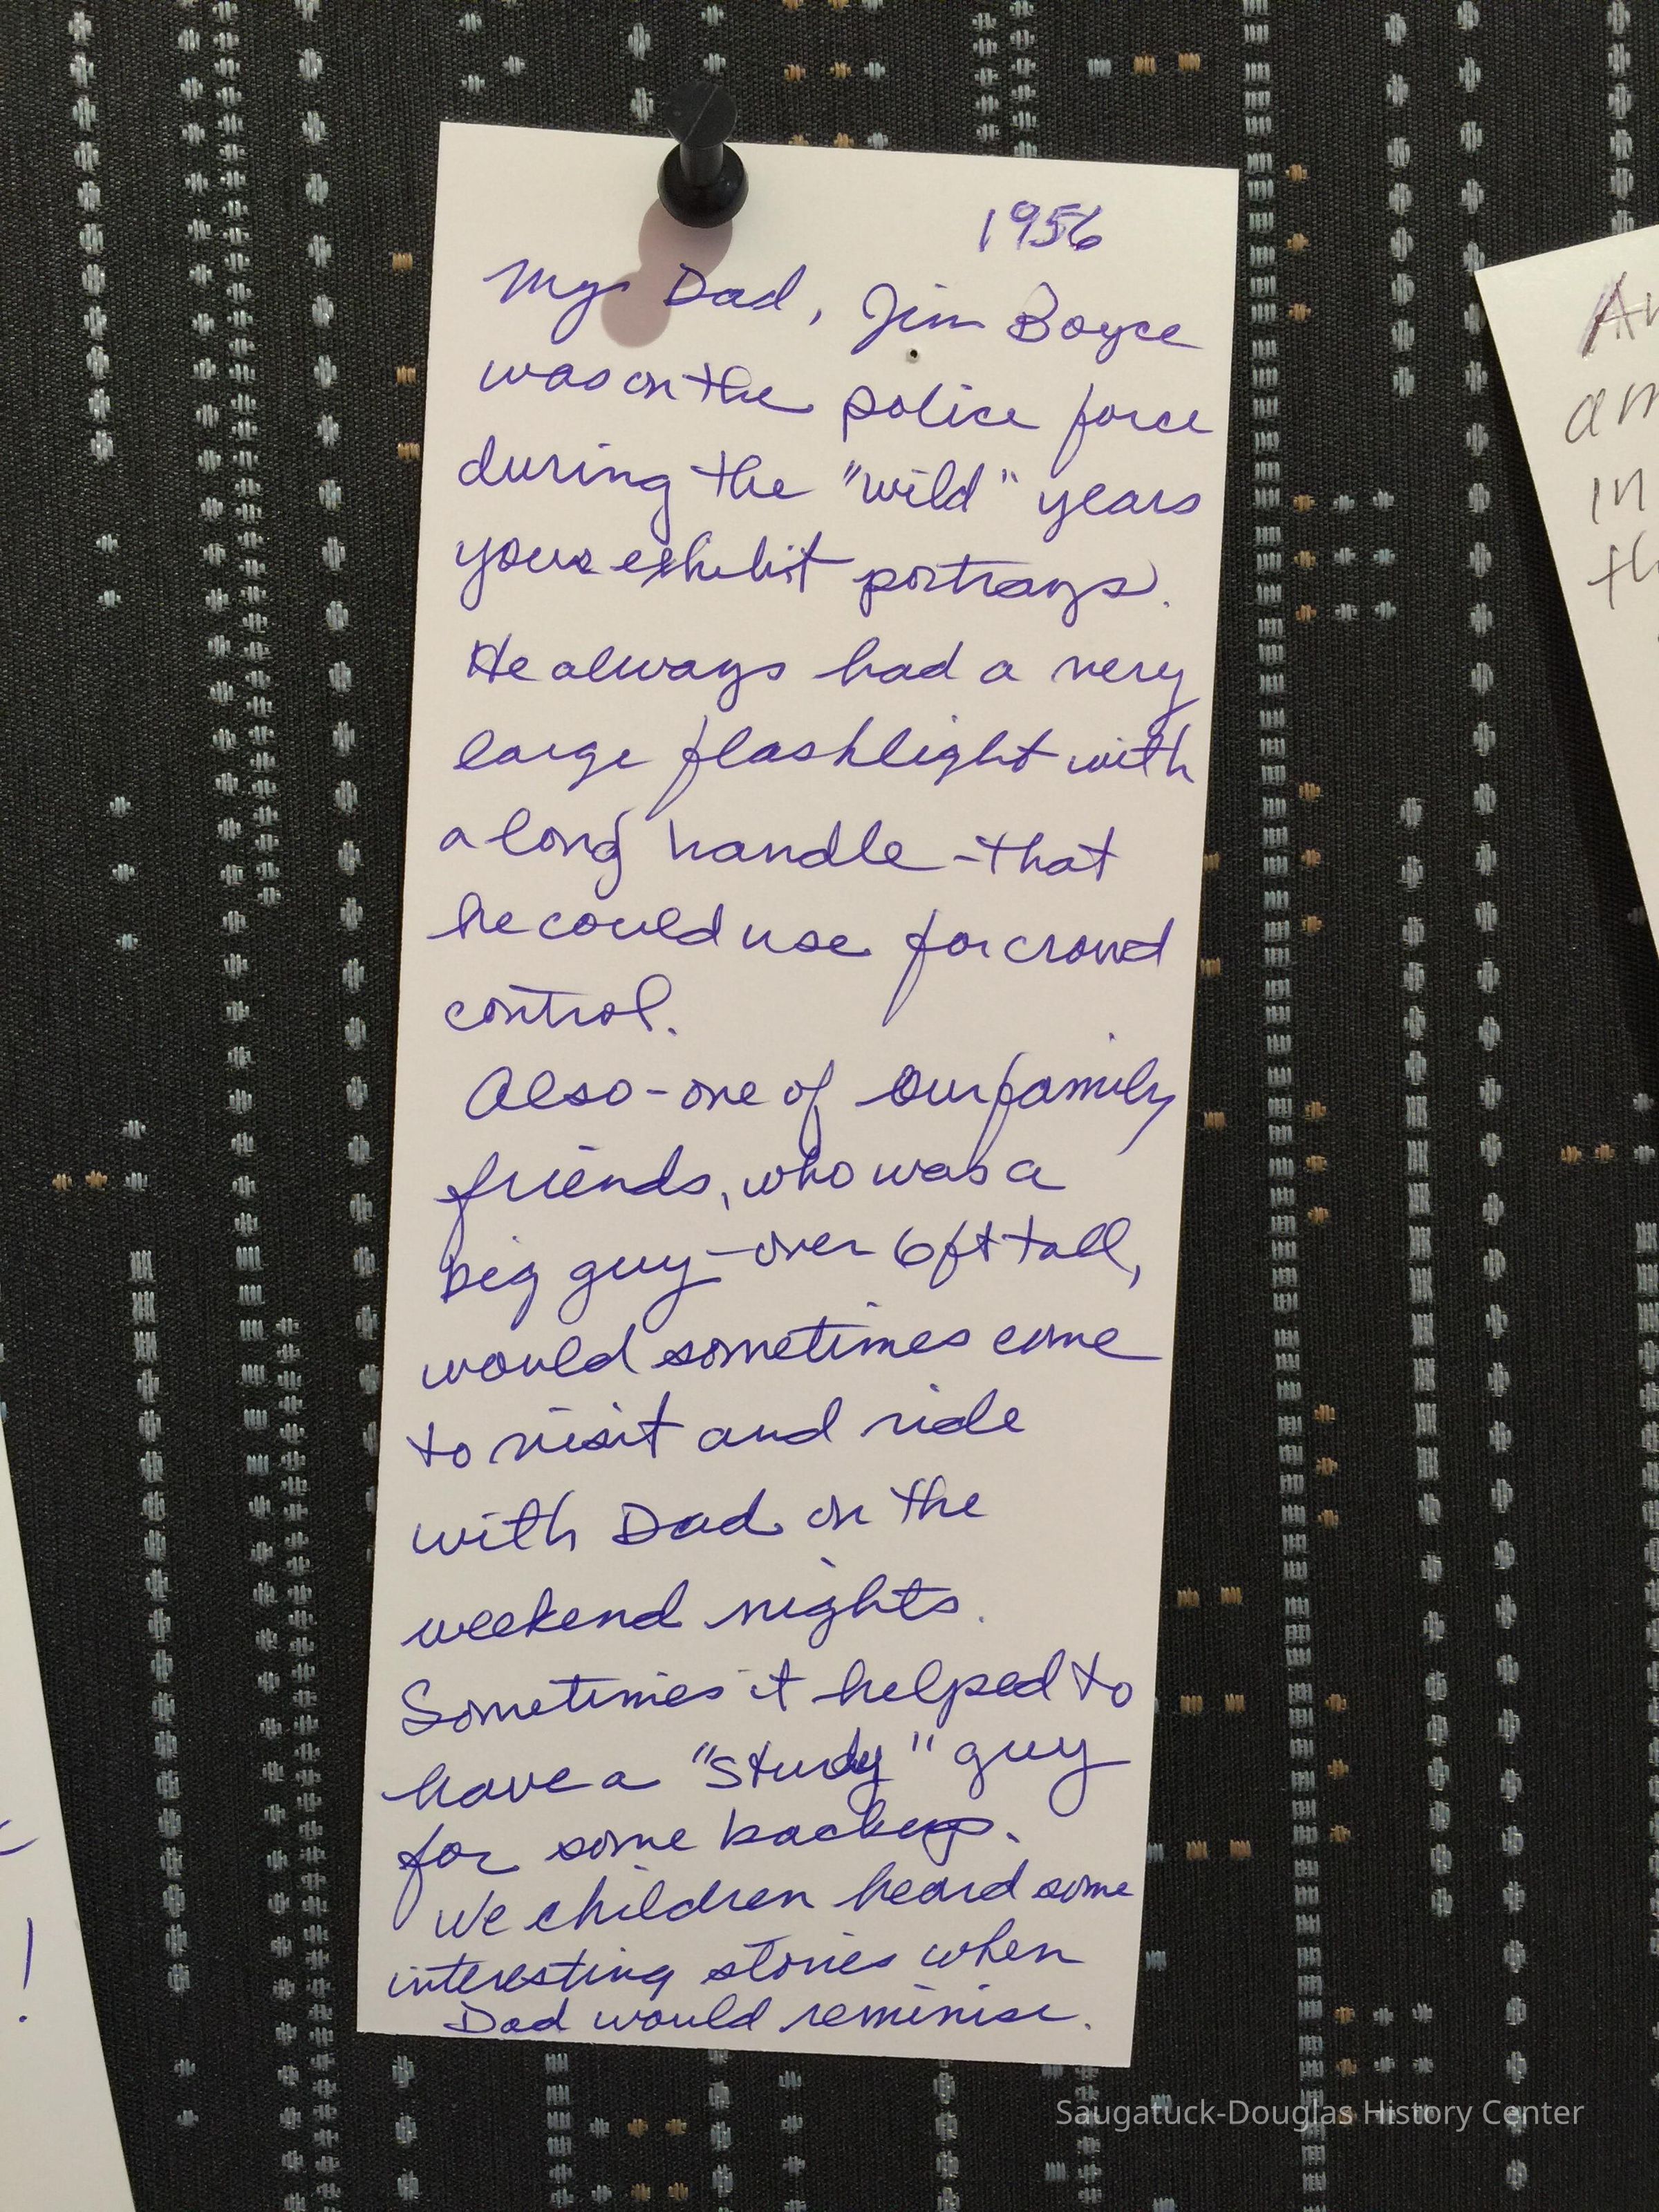 1956
My Dad, Jim Boyce
was on the police force
during the "wild" years
your exhibit portrays.
He always had a very
large flashlight with
a long handle - that
he could use for crowd
control.
Also - one of our family
friends, who was a
big guy - over 6ft tall,
would sometimes come
to visit and ride
with Dad on the
weekend nights.
Sometimes it helped to
have a "study" guy
for some backup.
We children heard some
interesting stories when
Dad would reminise.
in
!
Saugatuck-Douglas History Center